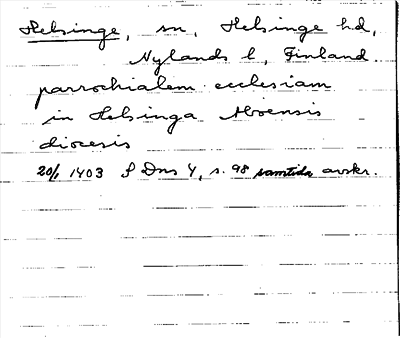 Helsinge, sn, Helsinge hd,
Nylands l, Finland.
parrochialem ecclesiam
in Helsinga Aboensis
diocesis
20/1 1403 S Dns 4, s. 98 samtida avskr.